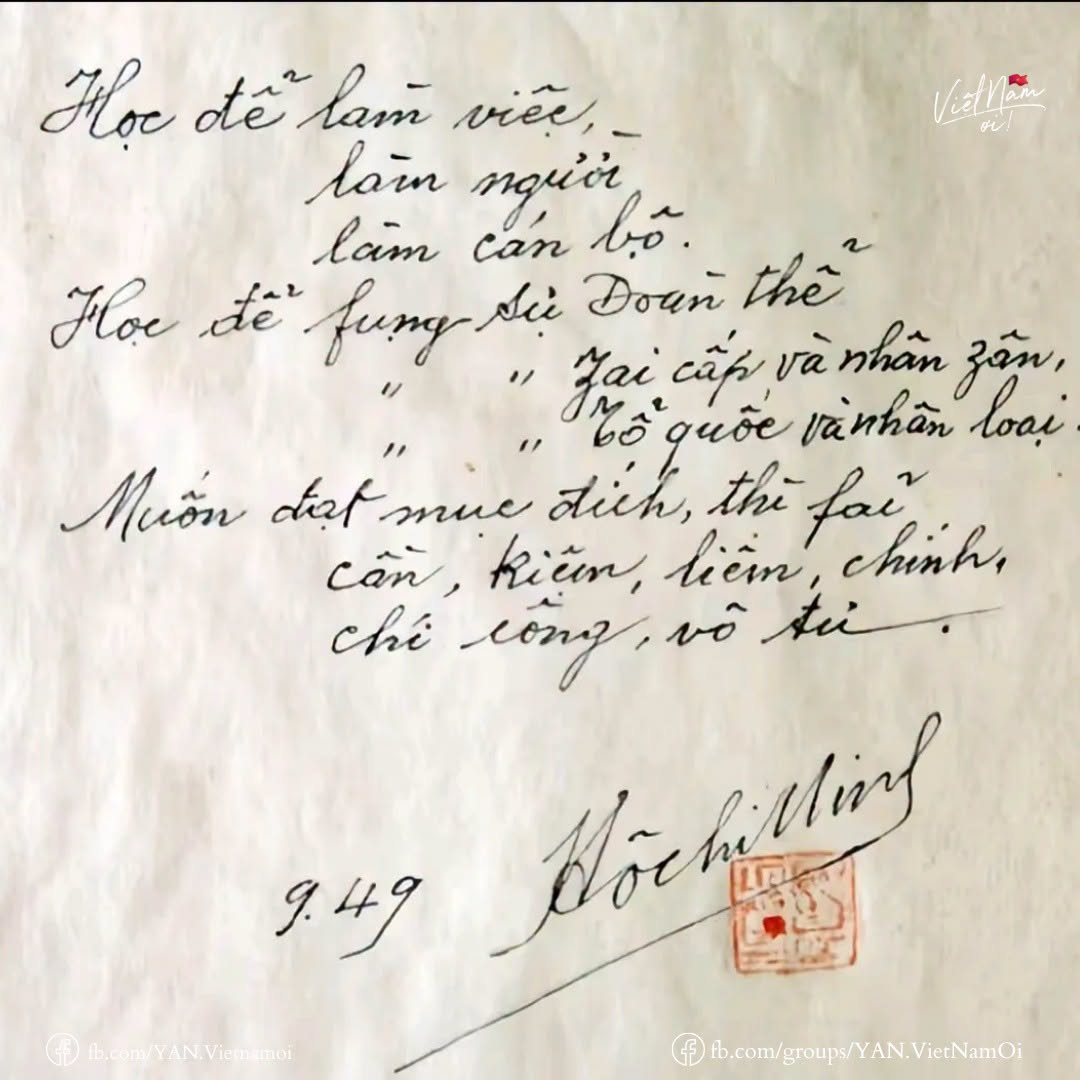 Học để làm việc,
làm người
làm cán bộ.
Học để fụng sự Đoàn thể
" " Zai cấp và nhân zân,
" " Tổ quốc và nhân loại.
Muốn đạt mục đích, thì fải
cần, kiệm, liêm, chính,
chí công, vô tư.
9.49
Hồ Chí Minh
Việt Nam ơi!
fb.com/YAN.Vietnamoi
fb.com/groups/YAN.VietNamOi